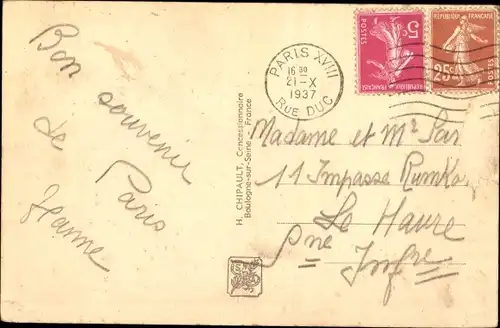 Bon souvenir
de Paris
Jeanne
H. CHIPAULT, Concessionnaire
Boulogne-sur-Seine - France
PARIS XVIII
16 30
21-X
1937
RUE DUC
REPUBLIQUE FRANÇAISE
5c
POSTES
REPUBLIQUE FRANÇAISE
25c
POSTES
Madame et Mr
11 Impasse
Le Havre
Sne Infre